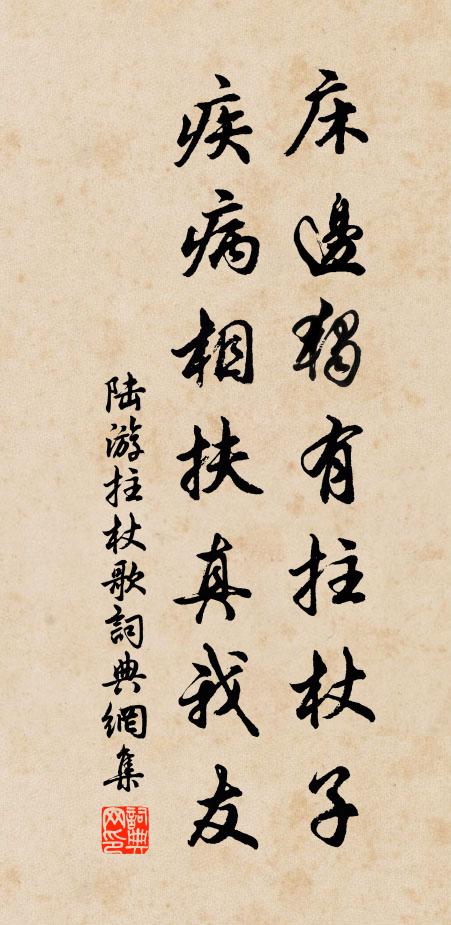 床邊獨有拄杖子
疾病相扶真我友
陆游拄杖歌詞典網集
詞典网印